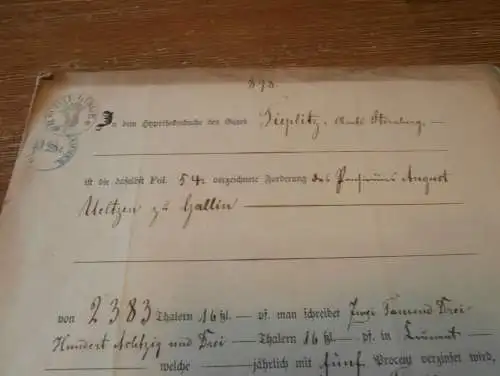 In dem Hypothekenbuche des Gutes Zieplitz, Amts Sternberg,
ist die daselbst Fol. 54. verzeichnete Forderung des Pensionairs August
Ueltzen zu Gallin
von 2383 Thalern 16 ßl. — pf. man schreibe Zwei Tausend Drei
Hundert Achtzig und Drei — Thalern 16 ßl. — pf. in
welche — jährlich mit fünf Procent verzinset wird,